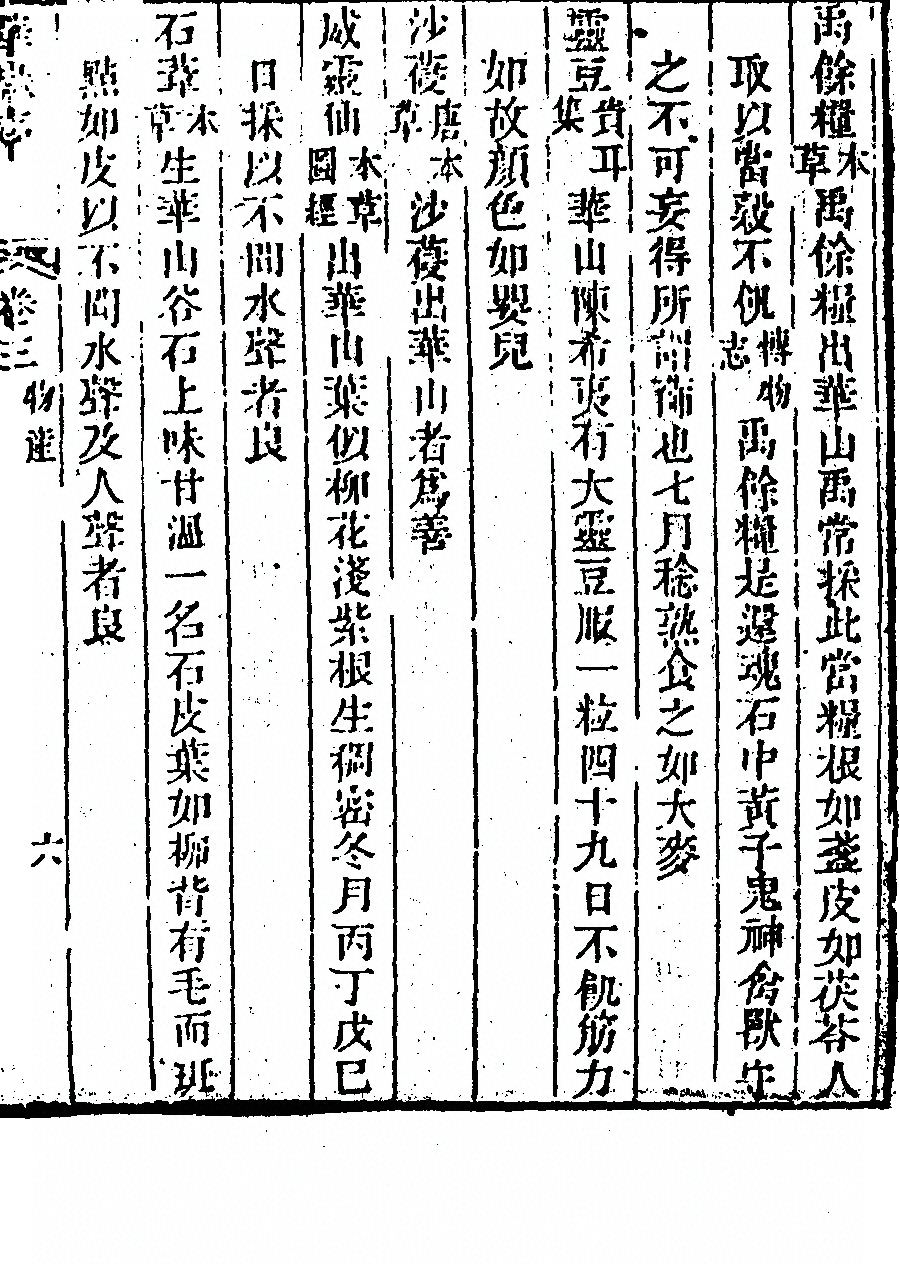 禹餘糧本草禹餘糧出華山禹常採此當糧根如盞皮如茯苓人
取以當穀不飢博物志禹餘糧是還魂石中黃子鬼神禽獸守
之不可妄得所謂衛也七月稔熟食之如大麥
靈豆貴耳集華山陳希夷有大靈豆服一粒四十九日不飢筋力
如故顏色如嬰兒
沙葠唐本草沙葠出華山者爲善
威靈仙本草圖經出華山葉似柳花淺紫根生稠密冬月丙丁戊巳
日採以不聞水聲者良
石葦本草生華山谷石上味甘溫一名石皮葉如柳背有毛而班
點如皮以不聞水聲及人聲者良
卷三 物產 六